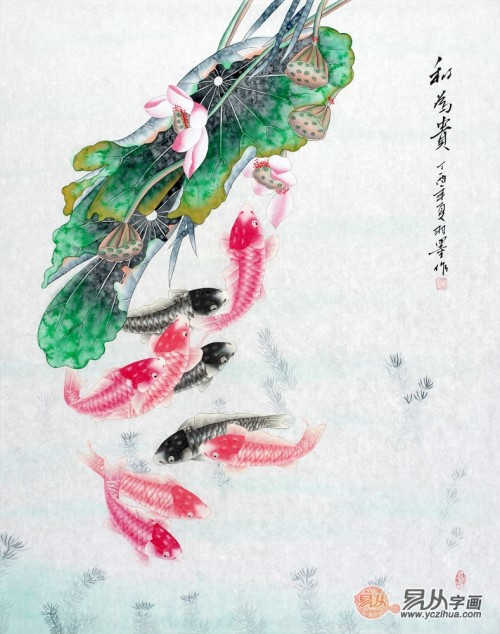 和为贵
丁酉年夏雨墨作
易从字画
www.yczihua.com